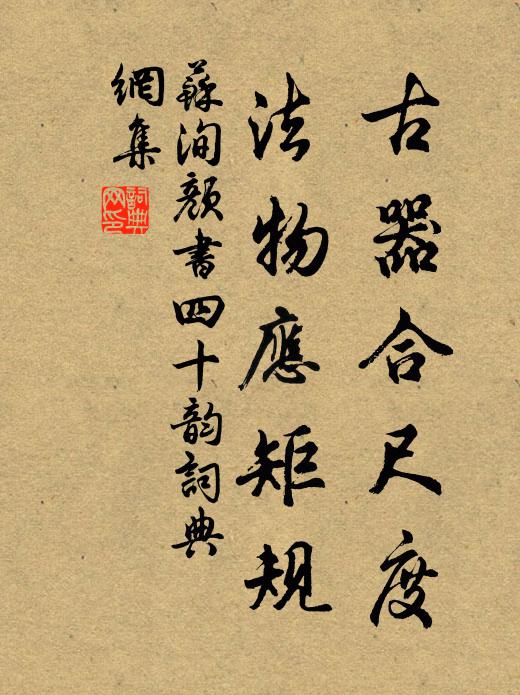 古器合尺度
法物應矩規
蘇洵顏書四十韵詞典
網集
詞典
网印